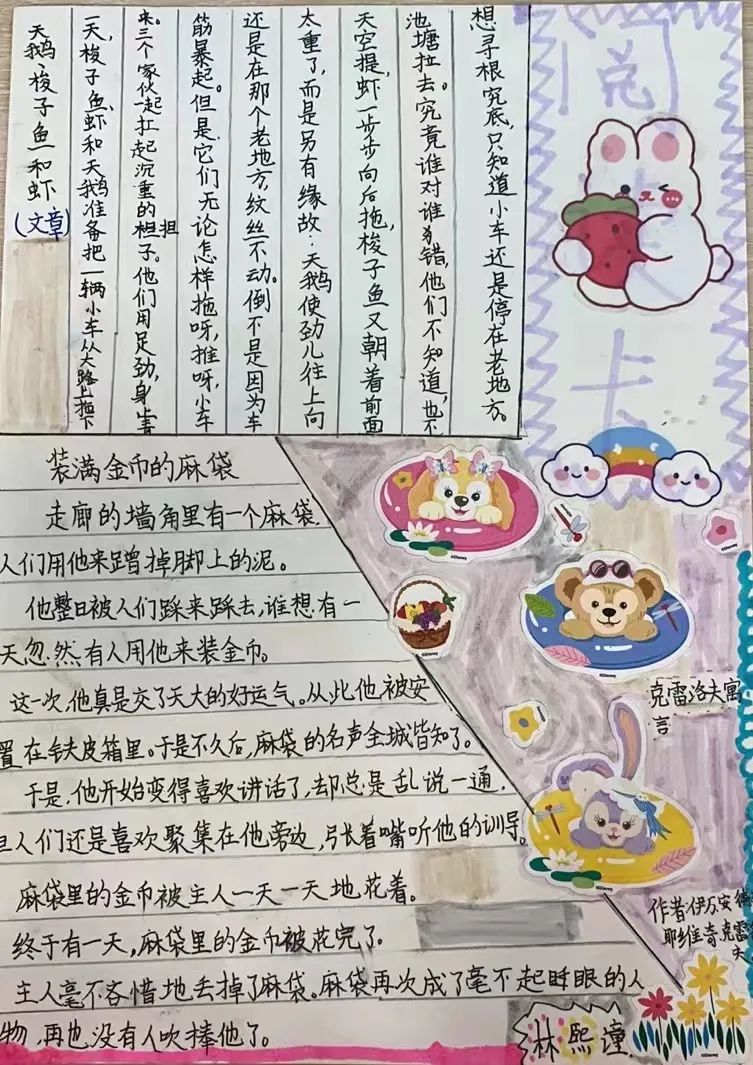 阅
卡
天鹅梭子鱼和虾
(文章)
一天,梭子鱼、虾和天鹅准备把一辆小车从大路上拖下
来。三个家伙一起扛起沉重的担子。他们用足劲,身
筋暴起。但是,它们无论怎样拖呀,推呀,小车
还是在那个老地方,纹丝不动。倒不是因为车
太重了,而是另有缘故:天鹅使劲儿往上向
天空提,虾一步步向后拖,梭子鱼又朝着前面
池塘拉去。究竟谁对谁错,他们不知道,也不
想寻根究底,只知道小车还是停在老地方。
装满金币的麻袋
走廊的墙角里有一个麻袋,
人们用他来蹭掉脚上的泥。
他整日被人们踩来踩去,谁想有一
天忽然有人用他来装金币。
这一次,他真是交了天大的好运气。从此他被安
置在铁皮箱里。于是不久后,麻袋的名声全城皆知了。
于是,他开始变得喜欢讲话了,却总是乱说一通,
但人们还是喜欢聚集在他旁边,张着嘴听他的训导。
麻袋里的金币被主人一天一天地花着。
终于有一天,麻袋里的金币被花完了。
主人毫不吝惜地丢掉了麻袋。麻袋再次成了毫不起眼的人
物,再也没有人吹捧他了。
克雷洛夫寓
言
作者:伊万·安德
耶维奇克雷
夫
林熙潼